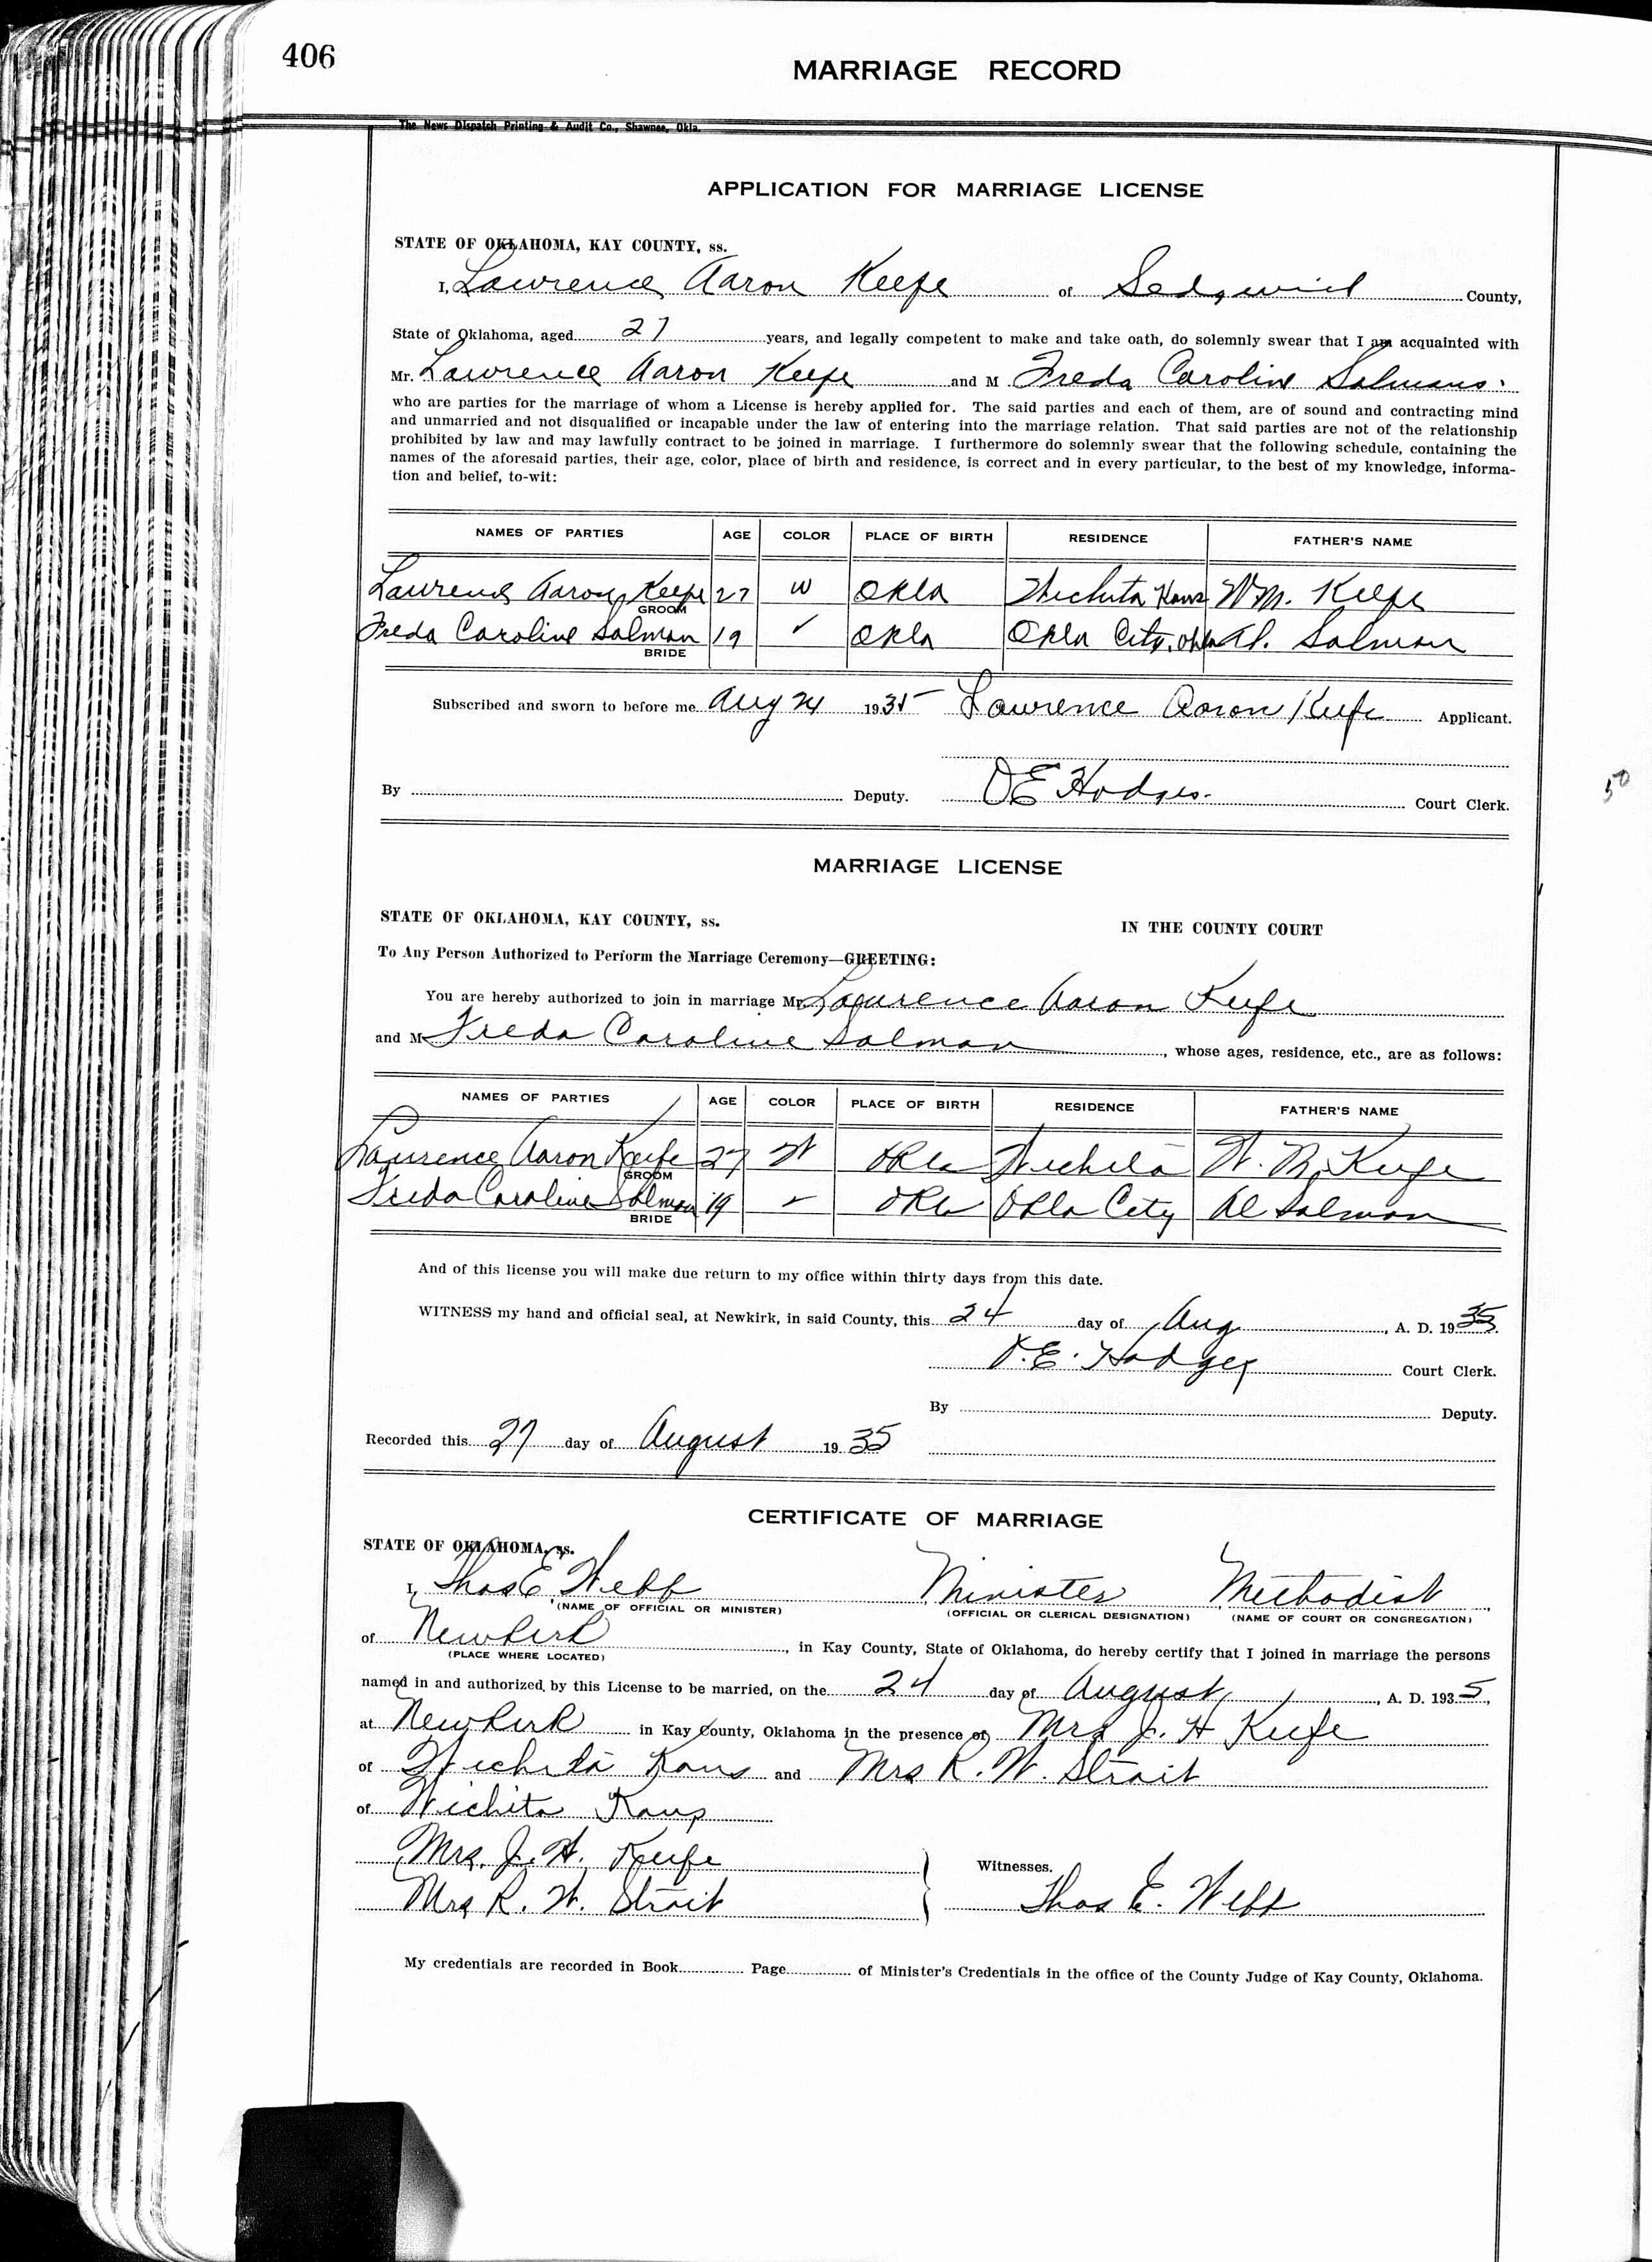 406
MARRIAGE RECORD
The News Dispatch Printing & Audit Co., Shawnee, Okla.
APPLICATION FOR MARRIAGE LICENSE
STATE OF OKLAHOMA, KAY COUNTY, ss.
I, Lawrence Aaron Keefe of Sedgwick County,
State of Oklahoma, aged 27 years, and legally competent to make and take oath, do solemnly swear that I am acquainted with
Mr. Lawrence Aaron Keefe and M Freda Caroline Salmans.
who are parties for the marriage of whom a License is hereby applied for. The said parties and each of them, are of sound and contracting mind
and unmarried and not disqualified or incapable under the law of entering into the marriage relation. That said parties are not of the relationship
prohibited by law and may lawfully contract to be joined in marriage. I furthermore do solemnly swear that the following schedule, containing the
names of the aforesaid parties, their age, color, place of birth and residence, is correct and in every particular, to the best of my knowledge, informa-
tion and belief, to-wit:
NAMES OF PARTIES AGE COLOR PLACE OF BIRTH RESIDENCE FATHER'S NAME
Lawrence Aaron Keefe 27 W Okla Wichita Kans Wm. Keefe
GROOM
Freda Caroline Salman 19 ✓ Okla Okla City, Okla Al. Salman
BRIDE
Subscribed and sworn to before me Aug 24 1935 Lawrence Aaron Keefe Applicant.
By Deputy. D E Hodges. Court Clerk.
50
MARRIAGE LICENSE
STATE OF OKLAHOMA, KAY COUNTY, ss. IN THE COUNTY COURT
To Any Person Authorized to Perform the Marriage Ceremony—GREETING:
You are hereby authorized to join in marriage Mr. Lawrence Aaron Keefe
and M Freda Caroline Salman, whose ages, residence, etc., are as follows:
NAMES OF PARTIES AGE COLOR PLACE OF BIRTH RESIDENCE FATHER'S NAME
Lawrence Aaron Keefe 27 W Okla Wichita W. M. Keefe
GROOM
Freda Caroline Salman 19 ✓ Okla Okla City Al Salman
BRIDE
And of this license you will make due return to my office within thirty days from this date.
WITNESS my hand and official seal, at Newkirk, in said County, this 24 day of Aug, A. D. 1935.
D. E. Hodges Court Clerk.
By Deputy.
Recorded this 27 day of August 1935
CERTIFICATE OF MARRIAGE
STATE OF OKLAHOMA, ss.
I, Thos E Webb Minister Methodist
(NAME OF OFFICIAL OR MINISTER) (OFFICIAL OR CLERICAL DESIGNATION) (NAME OF COURT OR CONGREGATION)
of Newkirk, in Kay County, State of Oklahoma, do hereby certify that I joined in marriage the persons
(PLACE WHERE LOCATED)
named in and authorized by this License to be married, on the 24 day of August, A. D. 1935,
at Newkirk in Kay County, Oklahoma in the presence of Mrs J. H Keefe
of Wichita Kans and Mrs R. W. Strait
of Wichita Kans
Mrs. J. H. Keefe Witnesses.
Mrs R. W. Strait Thos E. Webb
My credentials are recorded in Book Page of Minister's Credentials in the office of the County Judge of Kay County, Oklahoma.